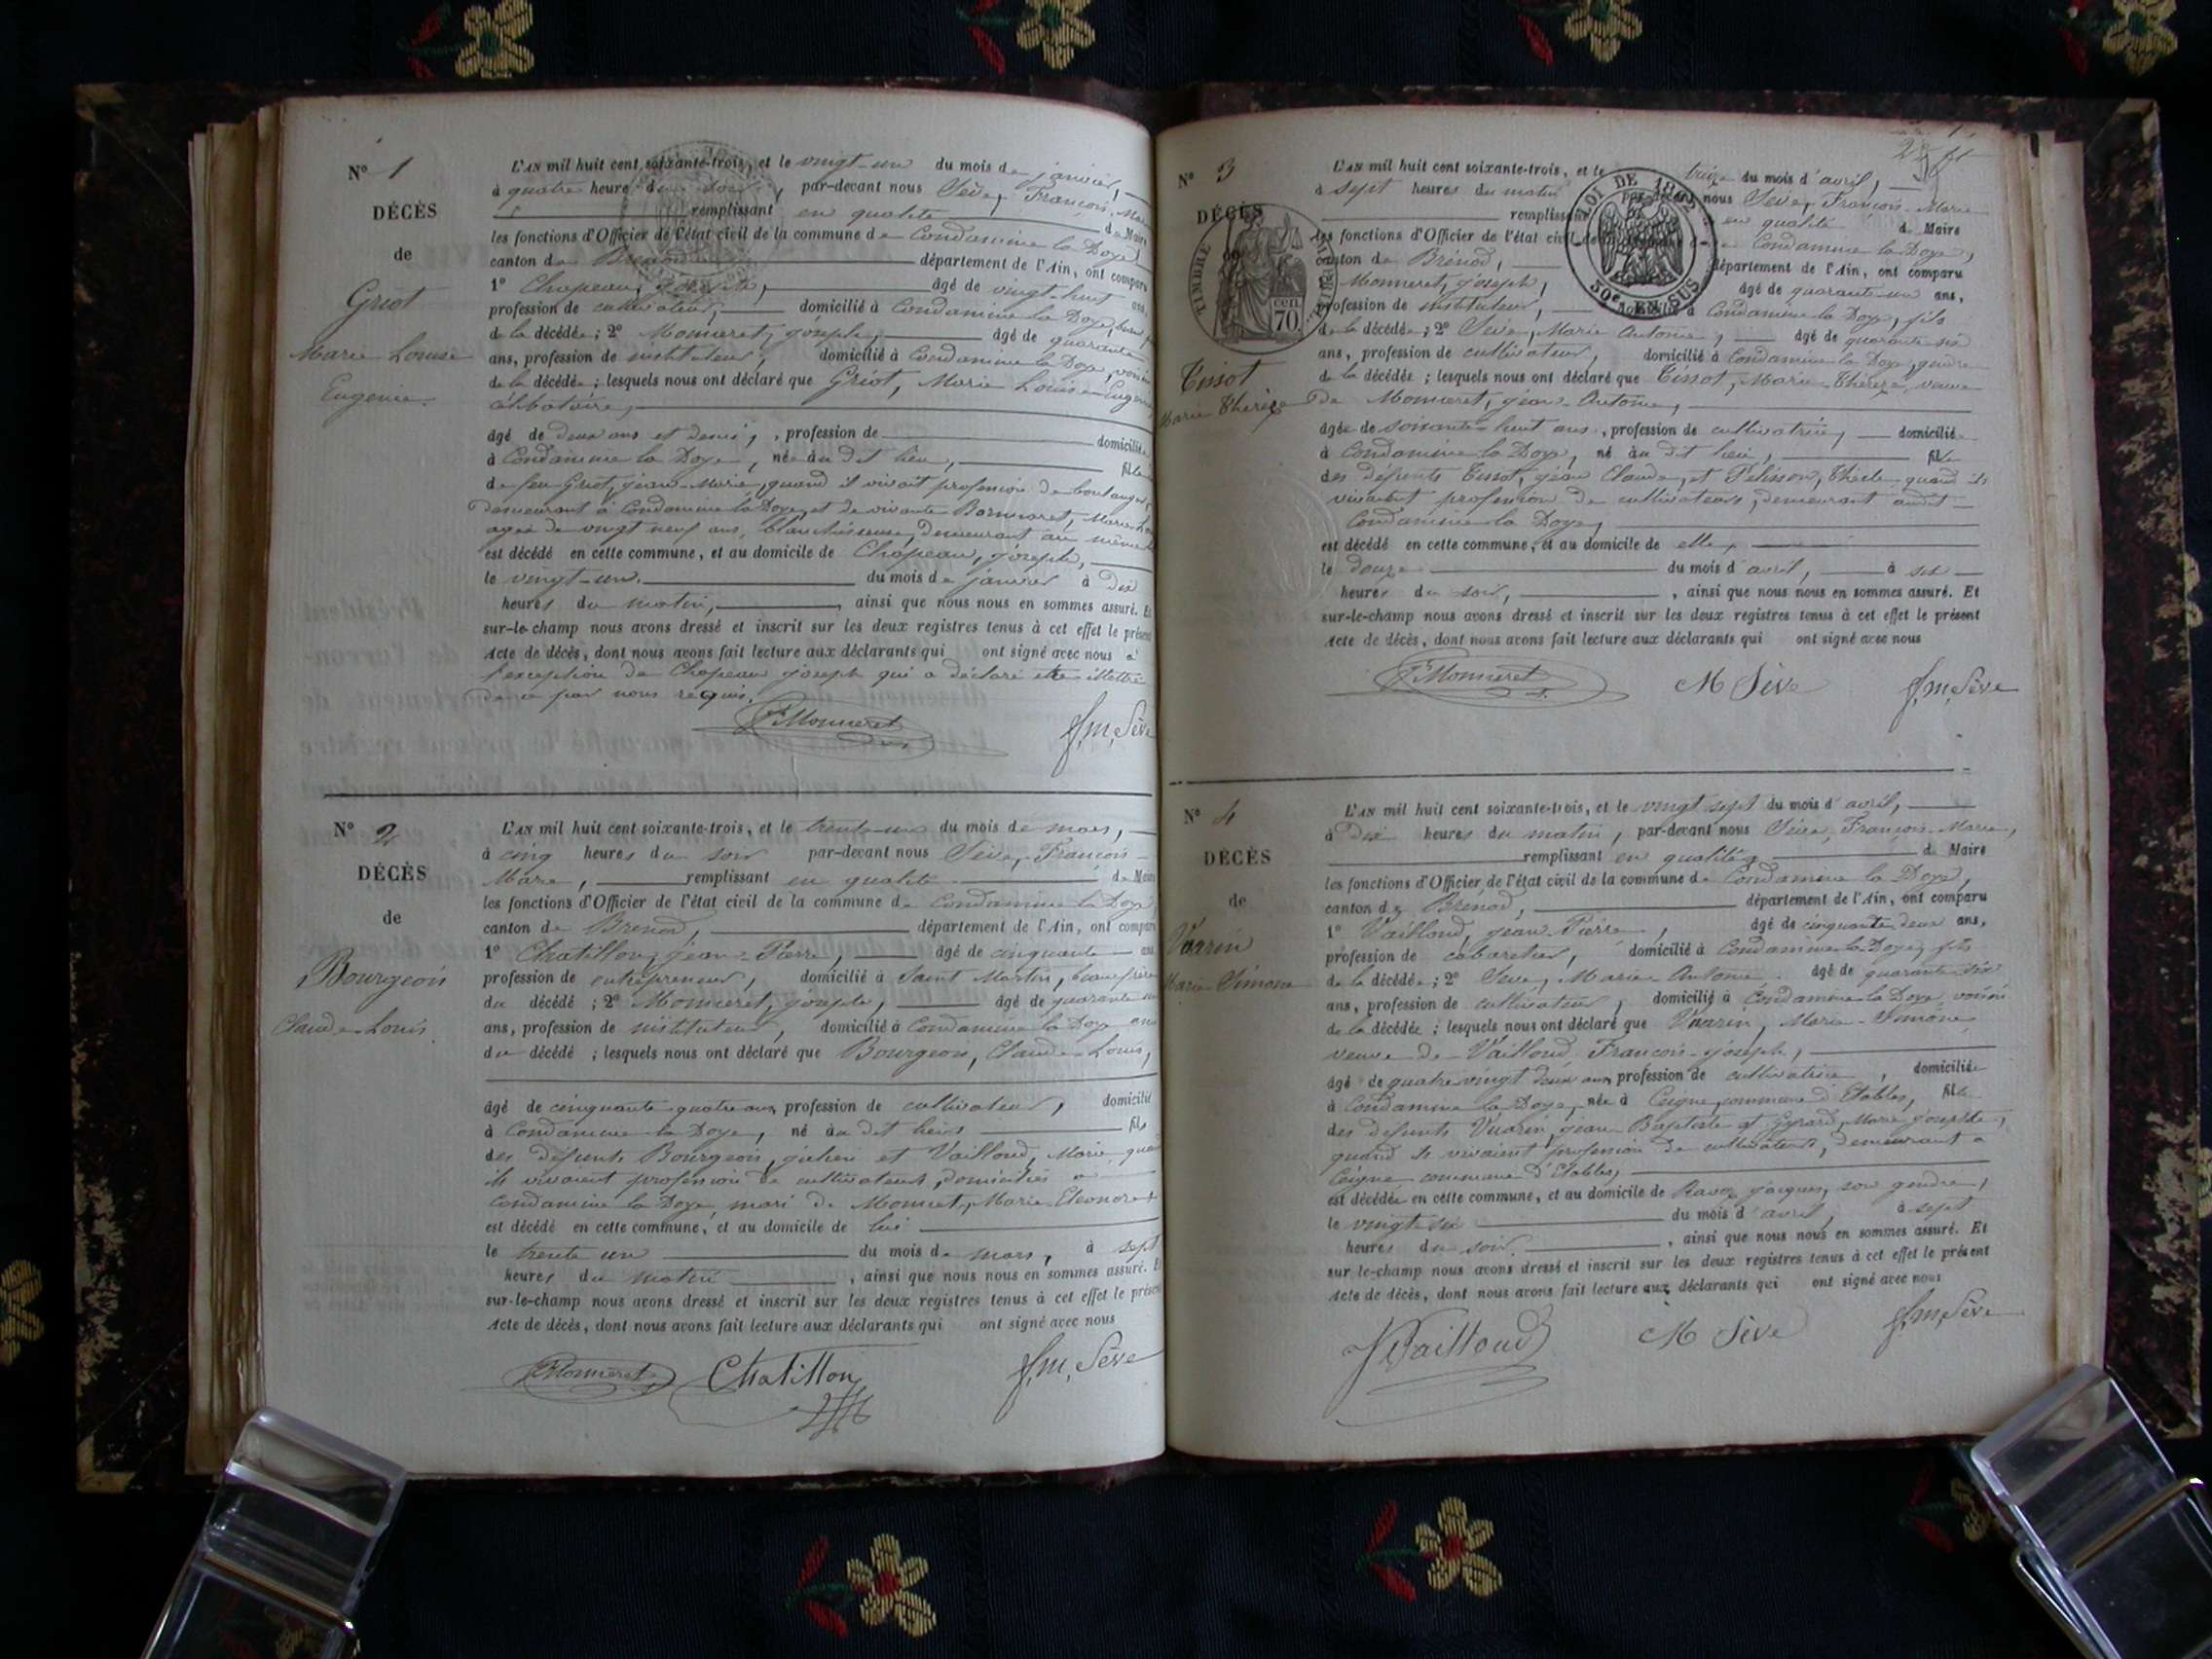 N° 1
DÉCÈS
de
Griot
Marie Louise
Eugenie.
L'AN mil huit cent soixante-trois, et le vingt-un du mois de janvier,
à quatre heures du soir, par-devant nous Sève, François,
remplissant en qualité de Maire
les fonctions d'Officier de l'état civil de la commune de Condamine la Doye,
canton de Brenod département de l'Ain, ont comparu
1° Chapeau, joseph, âgé de vingt-huit ans,
profession de cultivateur, domicilié à Condamine la Doye,
de la décédée; 2° Monneret, joseph, âgé de quarante
ans, profession de instituteur, domicilié à Condamine la Doye,
de la décédée; lesquels nous ont déclaré que Griot, Marie Louise Eugenie
célibataire,
âgé de deux ans et demi, profession de domiciliée
à Condamine la Doye, née au dit lieu, fille
de feu Griot, jean-Marie, quand il vivait profession de boulanger,
demeurant à Condamine la Doye, et de vivante
agée de vingt neuf ans, blanchisseuse, demeurant au même
est décédé en cette commune, et au domicile de Chapeau, joseph,
le vingt-un du mois de janvier à dix
heures du matin, ainsi que nous nous en sommes assuré. Et
sur-le-champ nous avons dressé et inscrit sur les deux registres tenus à cet effet le présent
Acte de décès, dont nous avons fait lecture aux déclarants qui ont signé avec nous à
l'exception de Chapeau joseph qui a déclaré être illettré
de ce par nous requis.
J Monneret
f,m, Sève
N° 2
DÉCÈS
de
Bourgeois
Claude-Louis.
L'AN mil huit cent soixante-trois, et le trente-un du mois de mars,
à cinq heures du soir par-devant nous Sève, François-
Marie, remplissant en qualité de Maire
les fonctions d'Officier de l'état civil de la commune de Condamine la Doye
canton de Brenod, département de l'Ain, ont comparu
1° Chatillon, jean-Pierre, âgé de cinquante ans
profession de entrepreneur, domicilié à Saint Martin, beau frère
du décédé; 2° Monneret, joseph, âgé de quarante un
ans, profession de instituteur, domicilié à Condamine la Doye ami
du décédé; lesquels nous ont déclaré que Bourgeois, Claude-Louis,
âgé de cinquante quatre ans, profession de cultivateur, domicilié
à Condamine la Doye, né au dit lieu fils
des défunts Bourgeois, et Vailloud, Marie, quand
ils vivaient profession de cultivateurs, domiciliés à
Condamine la Doye, mari de Monneret, Marie Eleonore
est décédé en cette commune, et au domicile de lui
le trente un du mois de mars, à sept
heures du matin, ainsi que nous nous en sommes assuré. Et
sur-le-champ nous avons dressé et inscrit sur les deux registres tenus à cet effet le présent
Acte de décès, dont nous avons fait lecture aux déclarants qui ont signé avec nous
J Monneret Chatillon f,m, Sève
N° 3
DÉCÈS
Tissot
Marie Thérèze
TIMBRE
CEN.
70
LOI DE 1862
50es EN SUS
L'AN mil huit cent soixante-trois, et le treize du mois d'avril,
à sept heures du matin nous Sève, François-Marie
remplissant en qualité de Maire
les fonctions d'Officier de l'état civil Condamine la Doye,
canton de Brénod, département de l'Ain, ont comparu
Monneret, joseph, âgé de quarante-un ans,
profession de instituteur, à Condamine la Doye, fils
de la décédée; 2° Sève, Marie Antoine, âgé de quarante six
ans, profession de cultivateur, domicilié à Condamine la Doye, gendre
de la décédée; lesquels nous ont déclaré que Tissot, Marie-Thérèze, veuve
de Monneret, jean-Antoine,
âgée de soixante-huit ans, profession de cultivatrice, domiciliée
à Condamine la Doye, né au dit lieu, fille
des défunts Tissot, jean Claude, et Pelisson, Thècle quand ils
vivaient profession de cultivateurs, demeurant audit
Condamine la Doye,
est décédé en cette commune, et au domicile de elle,
le douze du mois d'avril, à six
heures du soir, ainsi que nous nous en sommes assuré. Et
sur-le-champ nous avons dressé et inscrit sur les deux registres tenus à cet effet le présent
Acte de décès, dont nous avons fait lecture aux déclarants qui ont signé avec nous
J Monneret M Sève f,m, Sève
N° 4
DÉCÈS
de
Vuarin
Marie-Simone
L'AN mil huit cent soixante-trois, et le vingt sept du mois d'avril,
à dix heures du matin, par-devant nous Sève, François-Marie,
remplissant en qualité de Maire
les fonctions d'Officier de l'état civil de la commune de Condamine la Doye,
canton de Brenod, département de l'Ain, ont comparu
1° Vailloud, jean-Pierre, âgé de cinquante deux ans,
profession de cabaretier, domicilié à Condamine la Doye, fils
de la décédée; 2° Sève, Marie-Antoine. âgé de quarante six
ans, profession de cultivateur, domicilié à Condamine la Doye, voisin
de la décédée; lesquels nous ont déclaré que Vuarin, Marie-Simone,
veuve de Vailloud, François-joseph,
âgé de quatre vingt deux ans, profession de cultivatrice, domiciliée
à Condamine la Doye, née à Ceigne, commune d'Etables, fille
des défunts Vuarin, jean Baptiste et Gyrard, Marie josephte,
quand ils vivaient profession de cultivateurs, demeurant à
Ceigne commune d'Etables,
est décédée en cette commune, et au domicile de Ravoz jacques, son gendre,
le vingt six du mois d'avril, à sept
heures du soir, ainsi que nous nous en sommes assuré. Et
sur-le-champ nous avons dressé et inscrit sur les deux registres tenus à cet effet le présent
Acte de décès, dont nous avons fait lecture aux déclarants qui ont signé avec nous
Vailloud M Sève f,m, Sève